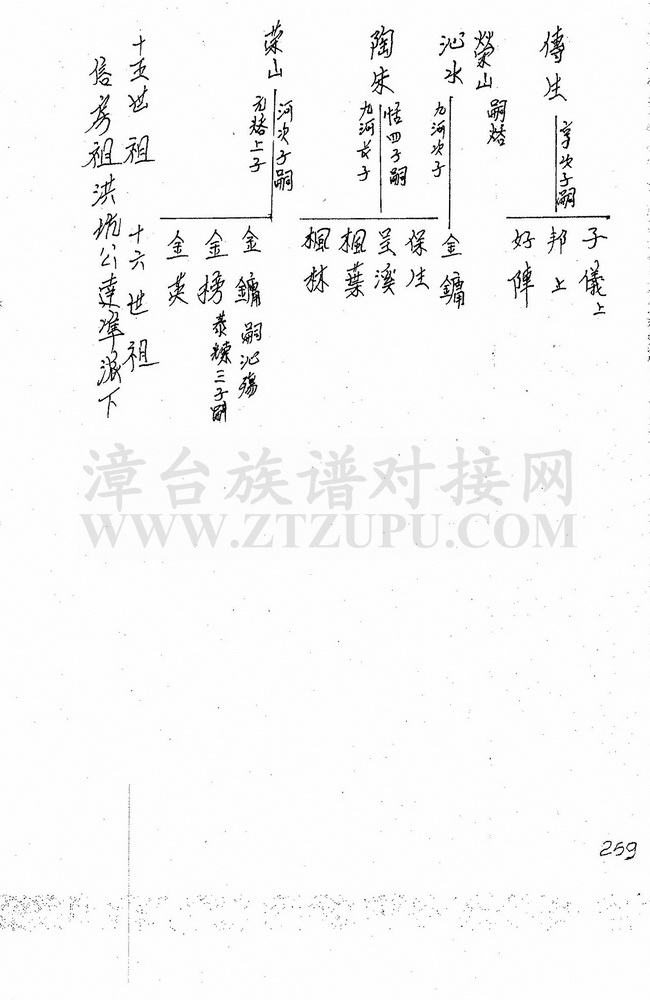 傳生
享次子嗣
子儀上
邦上
好陣
榮山
嗣焙
沁水
九河次子
金鏞
陶朱
恬四子嗣
九河长子
保生
吴溪
楓葉
楓林
荣山
河次子嗣
元焙上子
金鏞 嗣沁殤
金榜 恭練三子嗣
金英
十五世祖 十六世祖
信房祖洪坑公達準派下
漳台族谱对接网
WWW.ZTZUPU.COM
259